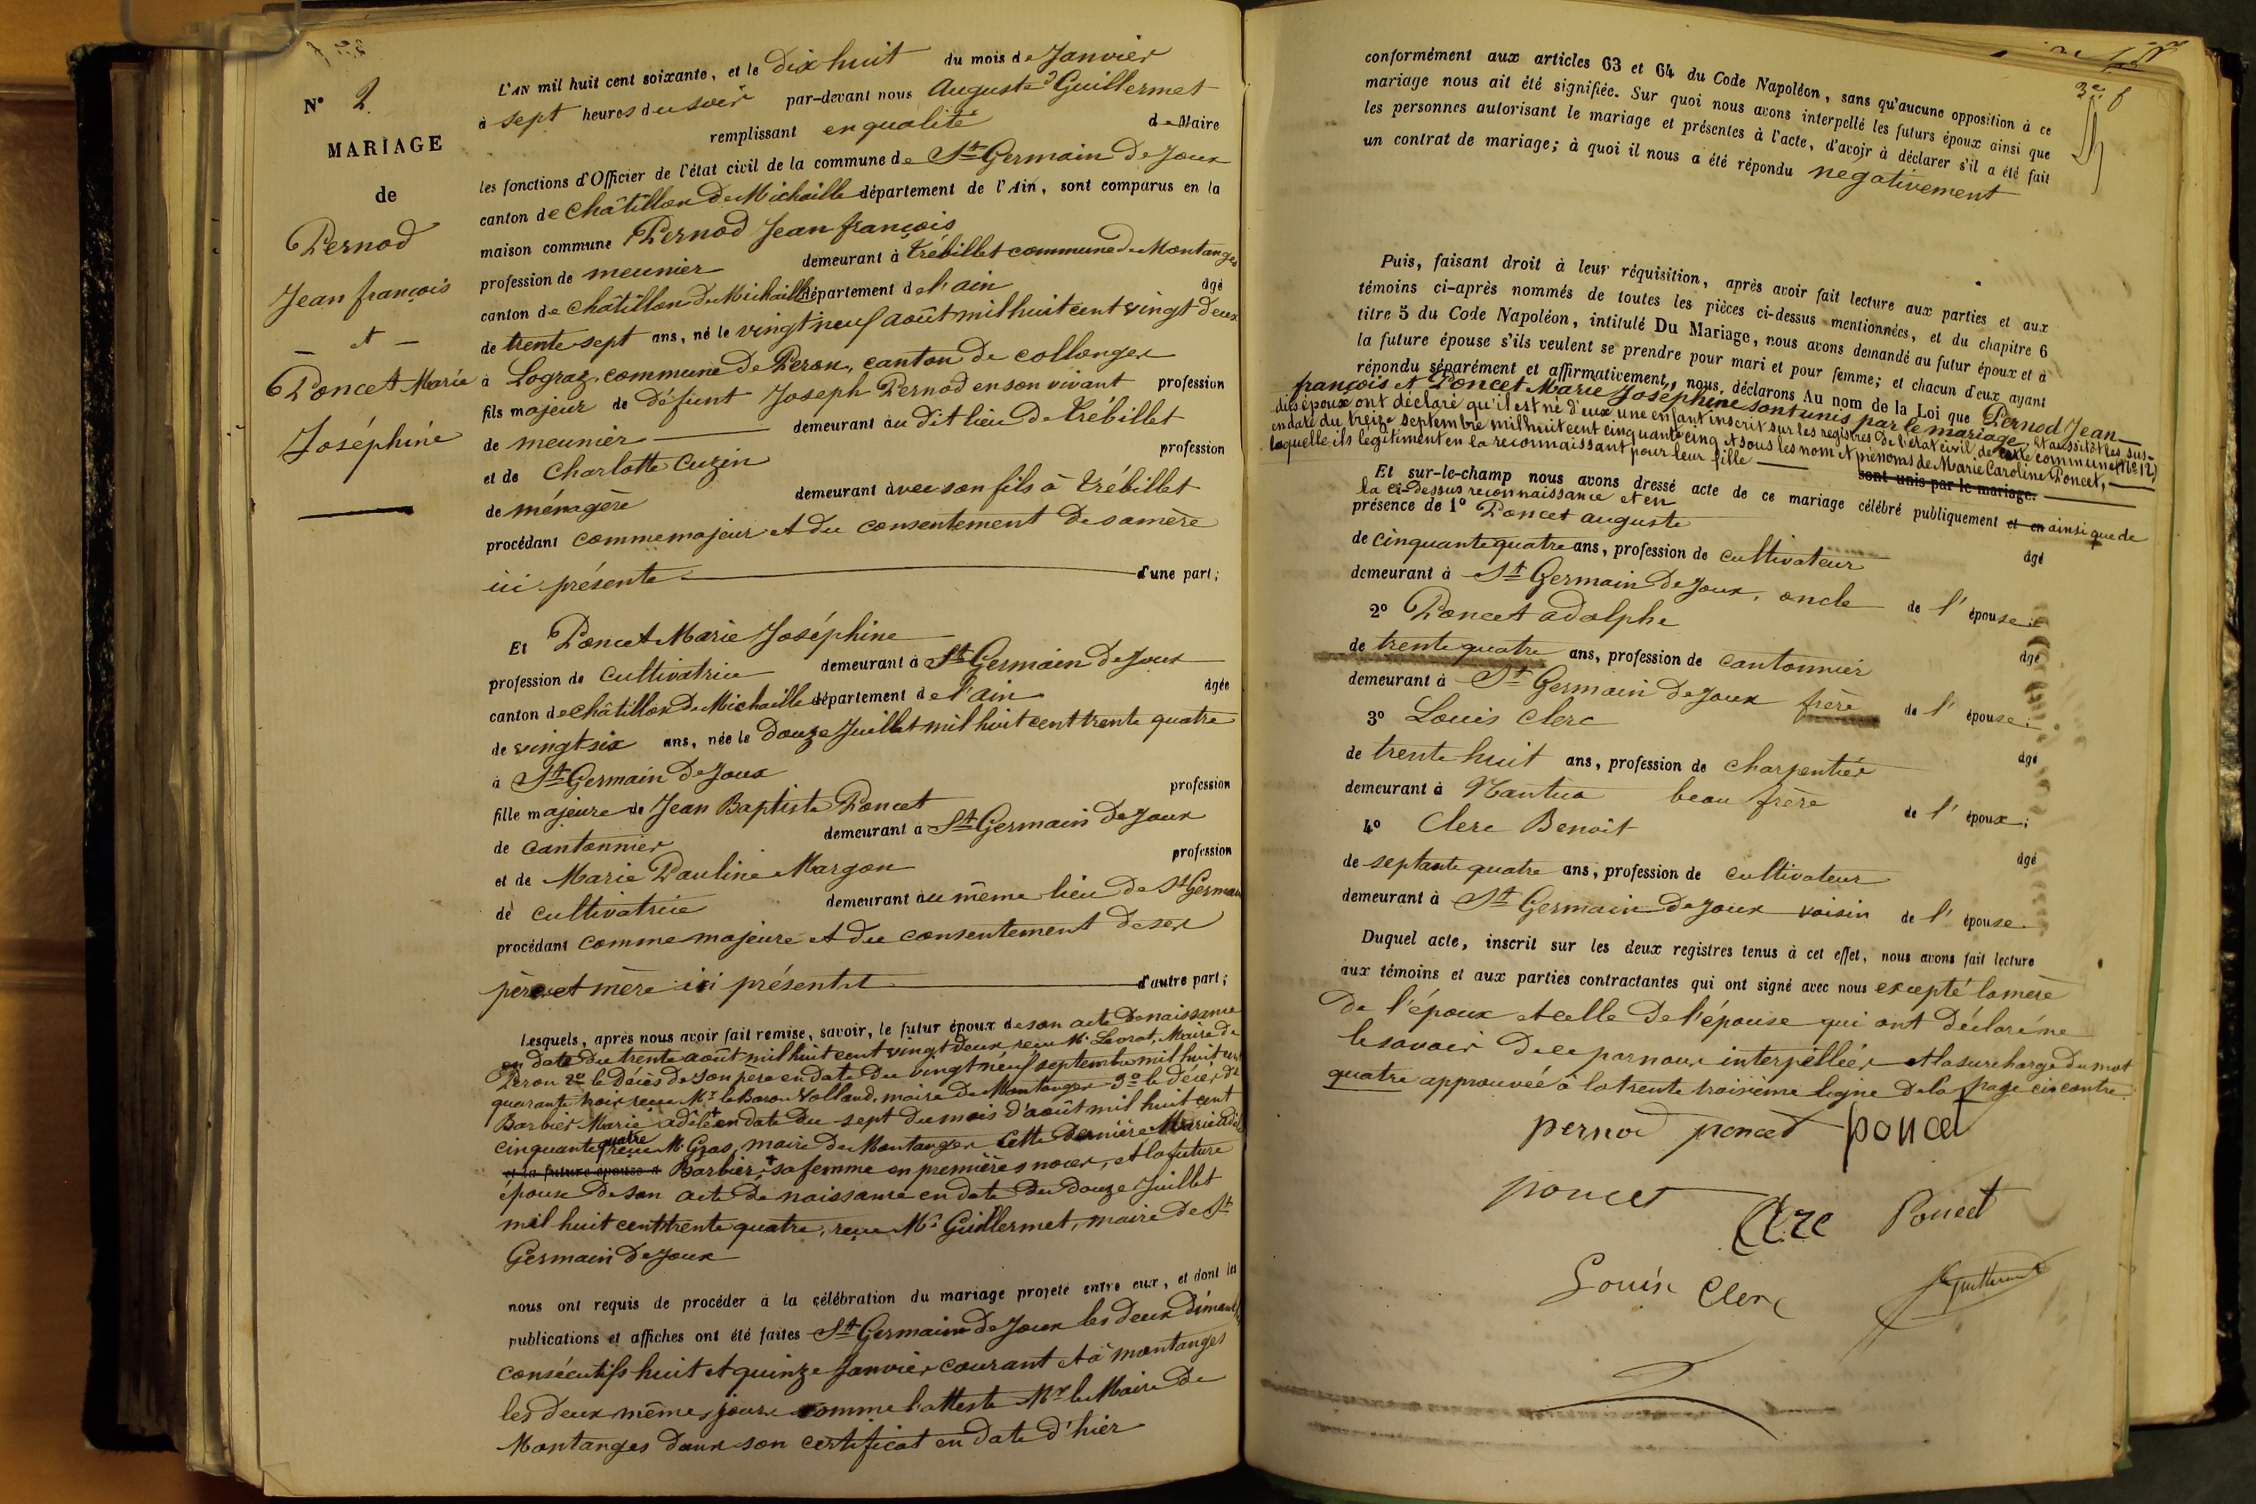 N° 2
MARIAGE
de
Pernod
Jean françois
— et —
Poncet Marie
Joséphine
L'AN mil huit cent soixante, et le dix huit du mois de Janvier
à sept heures du soir par-devant nous Auguste Guillermet
remplissant en qualité de Maire
les fonctions d'Officier de l'état civil de la commune de St Germain De Joux
canton de Châtillon De Michaille département de l'Ain, sont comparus en la
maison commune Pernod Jean françois
profession de meunier demeurant à Trébillet commune de Montanges
canton de Châtillon De Michaille département de l'ain âgé
de trente sept ans, né le vingt neuf août mil huit cent vingt deux
à Logras, commune de Peron, canton de collonges
fils majeur de défunt Joseph Pernod en son vivant profession
de meunier demeurant au dit lieu de Trébillet
et de Charlotte Cuzin profession
de ménagère demeurant avec son fils à Trébillet
procédant comme majeur et du consentement de sa mère
ici présente d'une part;
Et Poncet Marie Joséphine
profession de cultivatrice demeurant à St Germain De Joux
canton de châtillon De Michaille département de l'ain âgée
de vingt six ans, née le douze Juillet mil huit cent trente quatre
à St Germain De Joux
fille majeure de Jean Baptiste Poncet profession
de cantonnier demeurant à St Germain De Joux
et de Marie Pauline Margon profession
de cultivatrice demeurant au même lieu de St Germain
procédant comme majeure et du consentement de ses
père et mère ici présents d'autre part;
Lesquels, après nous avoir fait remise, savoir, le futur époux de son acte de naissance
en date du trente août mil huit cent vingt deux reçu Mr Levrat, Maire de
Peron 2° le décès de son père en date du vingt neuf septembre mil huit cent
quarante trois reçu Mr le Baron Volland, maire de Montanges 3° le décès de
Barbier Marie adèle + en date du sept du mois d'août mil huit cent
cinquante quatre reçu Mr Gras, maire de Montanges cette dernière Marie Adèle
et la future épouse d Barbier + sa femme en premières noces, et la future
épouse de son acte de naissance en date du douze Juillet
mil huit cent trente quatre, reçu Mr Guillermet, maire de St
Germain De Joux
nous ont requis de procéder à la célébration du mariage projeté entre eux, et dont les
publications et affiches ont été faites St Germain De Joux les deux dimanches
consécutifs huit et quinze Janvier courant et à montanges
les deux mêmes jours comme l'atteste Mr le Maire de
Montanges dans son certificat en date d'hier
conformément aux articles 63 et 64 du Code Napoléon, sans qu'aucune opposition à ce
mariage nous ait été signifiée. Sur quoi nous avons interpellé les futurs époux ainsi que
les personnes autorisant le mariage et présentes à l'acte, d'avoir à déclarer s'il a été fait
un contrat de mariage; à quoi il nous a été répondu négativement
Puis, faisant droit à leur réquisition, après avoir fait lecture aux parties et aux
témoins ci-après nommés de toutes les pièces ci-dessus mentionnées, et du chapitre 6
titre 5 du Code Napoléon, intitulé Du Mariage, nous avons demandé au futur époux et à
la future épouse s'ils veulent se prendre pour mari et pour femme; et chacun d'eux ayant
répondu séparément et affirmativement, nous déclarons Au nom de la Loi que Pernod Jean
françois et Poncet Marie Joséphine sont unis par le mariage. Et aussitôt les sus-
dits époux ont déclaré qu'il est né d'eux une enfant inscrit sur les registres de l'état civil de cette commune (N° 12)
en date du treize septembre mil huit cent cinquante cinq et sous les nom et prénoms de Marie Caroline Poncet,
laquelle ils légitiment en la reconnaissant pour leur fille sont unis par le mariage.
Et sur-le-champ nous avons dressé acte de ce mariage célébré publiquement et en ainsi que de
la ci-dessus reconnaissance et en
présence de 1° Poncet auguste
de cinquante quatre ans, profession de cultivateur âgé
demeurant à St Germain De Joux, oncle de l'épouse
2° Poncet adolphe
de trente quatre ans, profession de cantonnier âgé
demeurant à St Germain De Joux frère de l'épouse.
3° Louis Clerc
de trente huit ans, profession de charpentier âgé
demeurant à Nantua beau frère de l'époux;
4° Clerc Benoit
de septante quatre ans, profession de cultivateur âgé
demeurant à St Germain De Joux voisin de l'épouse.
Duquel acte, inscrit sur les deux registres tenus à cet effet, nous avons fait lecture
aux témoins et aux parties contractantes qui ont signé avec nous excepté la mère
De l'époux et celle De l'épouse qui ont déclaré ne
le savoir De ce par nous interpellées et la surcharge du mot
quatre approuvée à la trente troisième ligne de la page ci contre.
pernod poncet poncet
poncet Clerc Poncet
Louis Clerc Guillermet